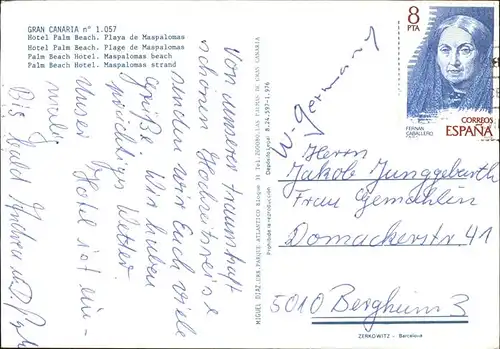 GRAN CANARIA nº 1.057
Hotel Palm Beach. Playa de Maspalomas
Hotel Palm Beach. Plage de Maspalomas
Palm Beach Hotel. Maspalomas beach
Palm Beach Hotel. Maspalomas strand
Von unserer traumhaft
schönen Hochzeitsreise
senden wir Euch viele
Grüße. Wir haben
prächtiges Wetter.
Unser Hotel ist ein-
malig.
Bis bald
MIGUEL DIAZ.URB.PARQUE ATLANTICO Bloque
LAS PALMAS DE GRAN CANARIA
Prohibida la reproducción
Depósito Legal B.24.597-1.976
8
PTA
CORREOS
ESPAÑA
FERNAN
CABALLERO
W. Germany
Herrn
Jakob Junggeburth
Frau Gemahlin
Domackerstr. 41
5010 Bergheim 3
ZERKOWITZ - Barcelona